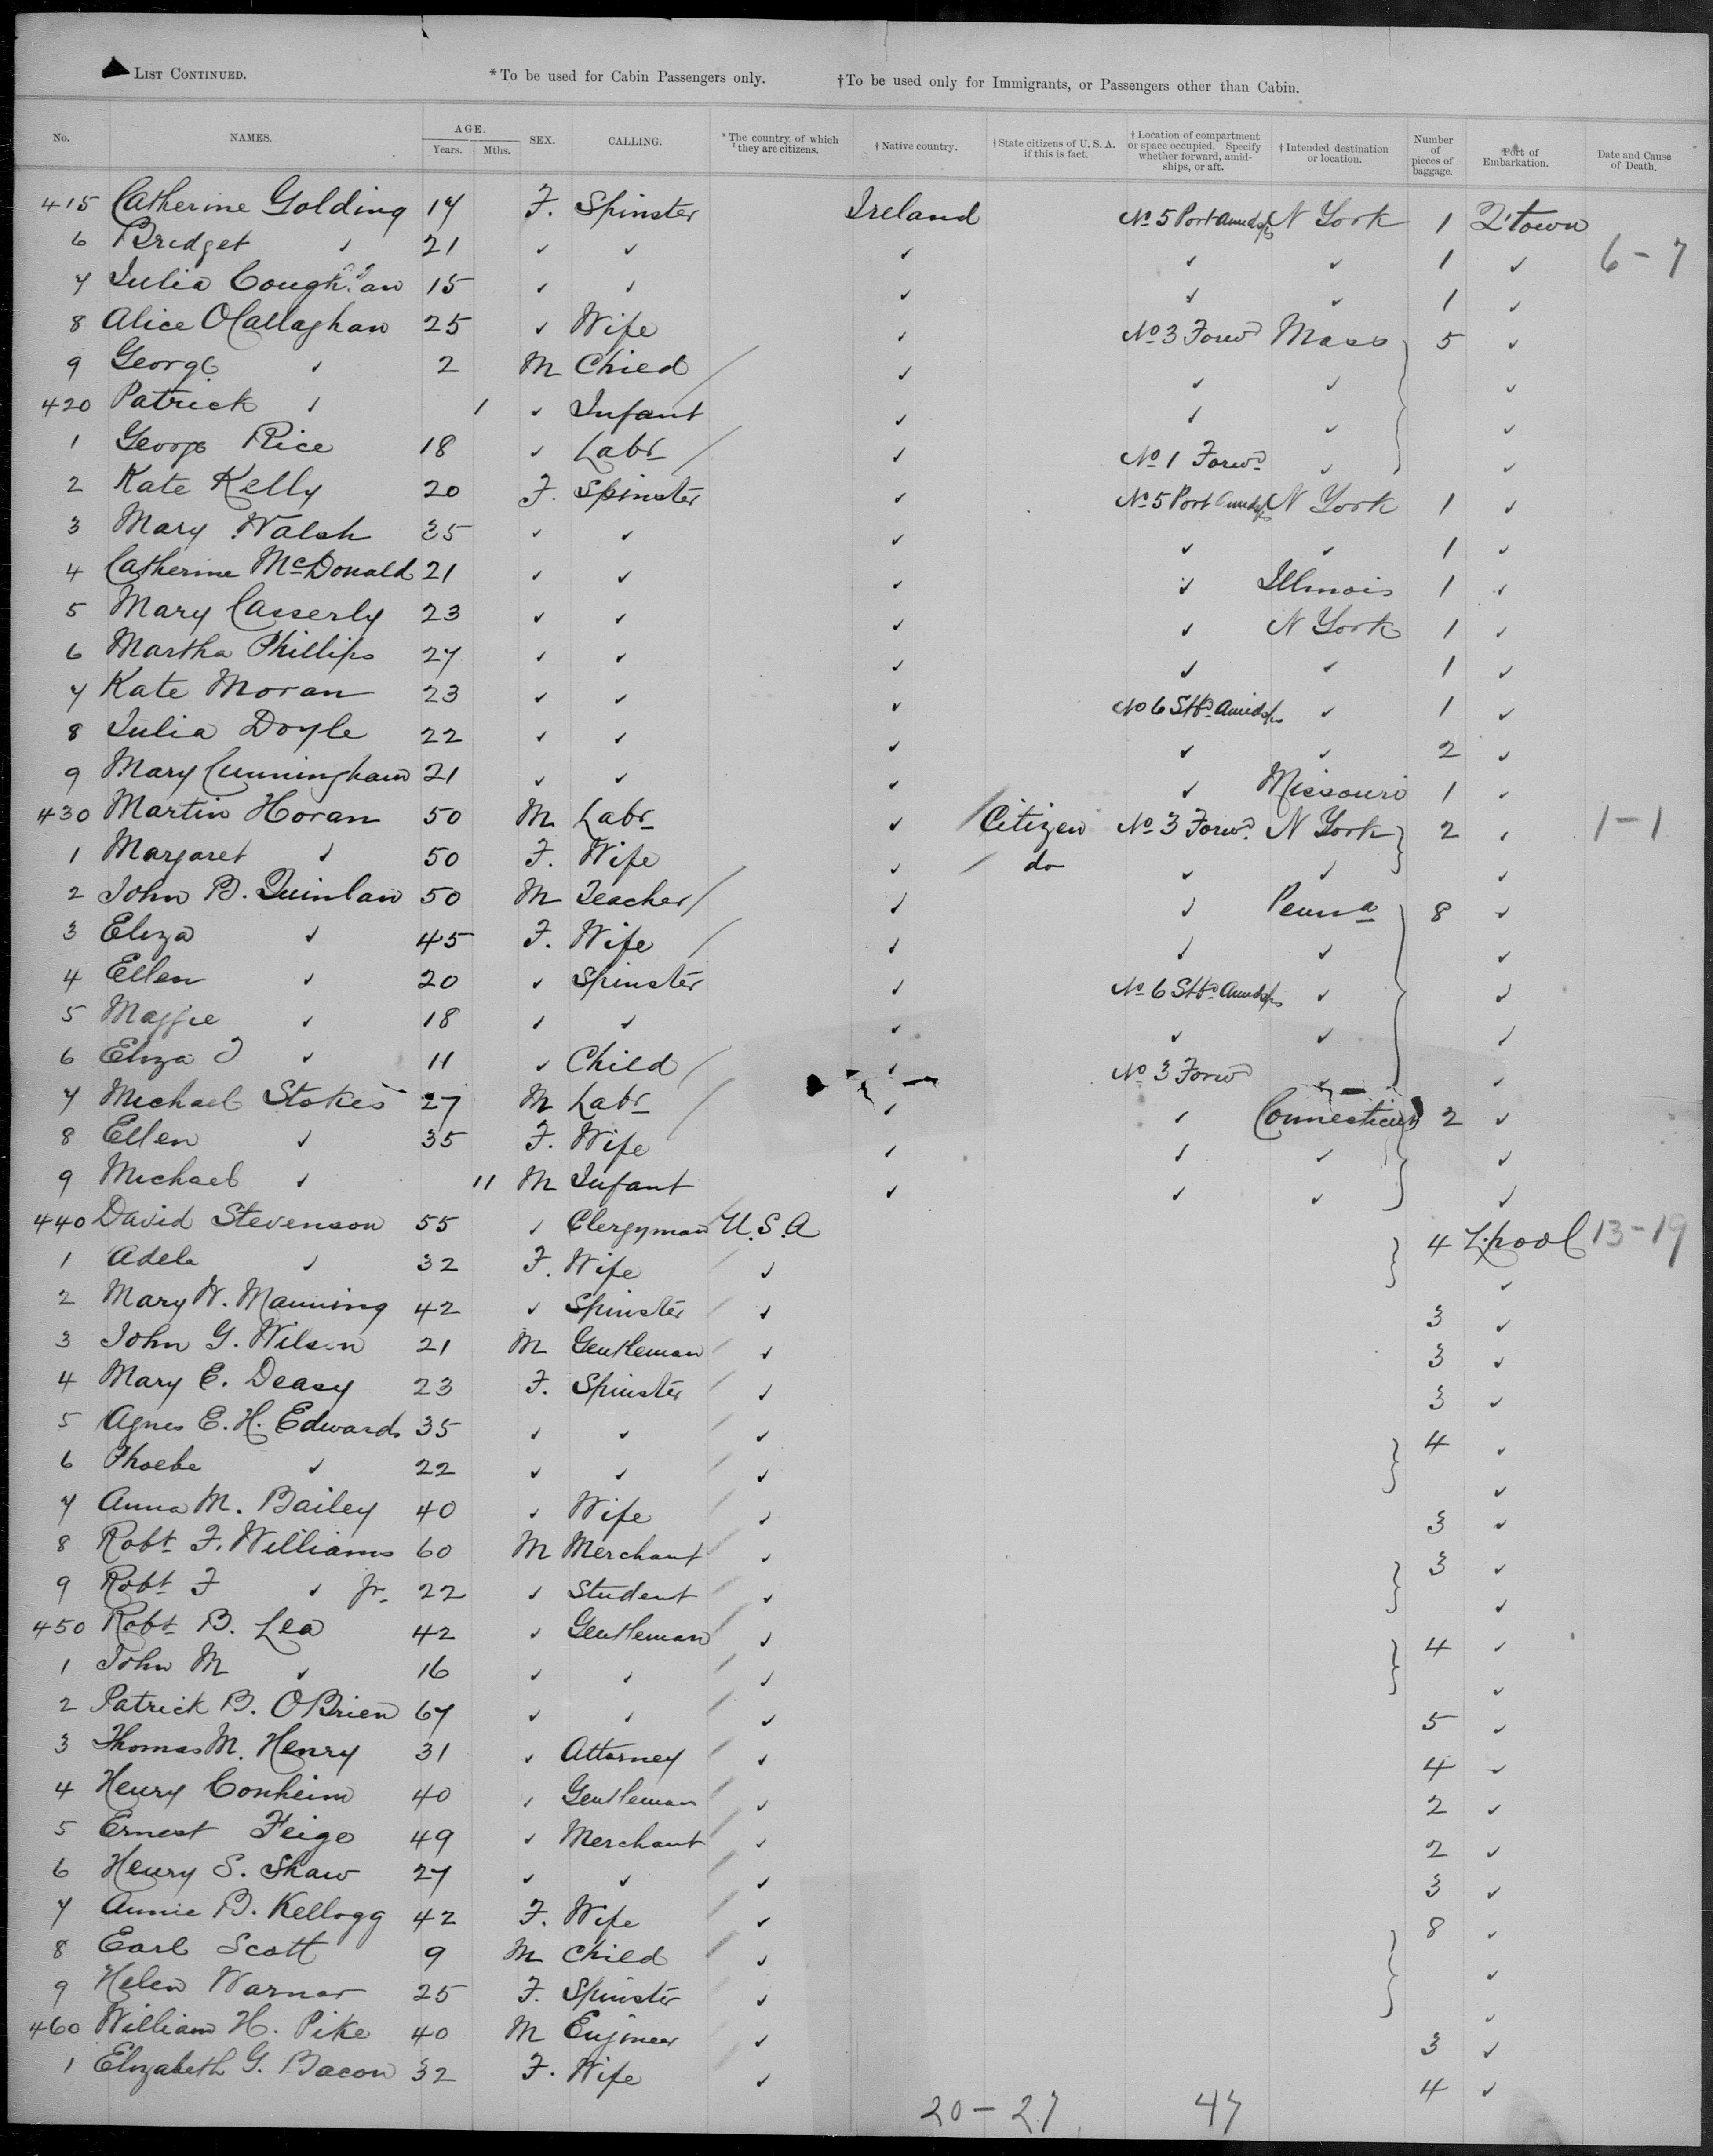 LIST CONTINUED. *To be used for Cabin Passengers only. †To be used only for Immigrants, or Passengers other than Cabin.
No. NAMES. AGE. Years. Mths. SEX. CALLING. *The country of which they are citizens. †Native country. †State citizens of U. S. A. if this is fact. †Location of compartment or space occupied. Specify whether forward, amidships, or aft. †Intended destination or location. Number of pieces of baggage. Port of Embarkation. Date and Cause of Death.
415 Catherine Golding 17 F. Spinster Ireland No 5 Port Amidsps N York 1 Q'town
6 Bridget ✓ 21 ✓ ✓ ✓ ✓ ✓ 1 ✓ 6-7
7 Julia Coughlan 15 ✓ ✓ ✓ ✓ ✓ 1 ✓
8 Alice O'Callaghan 25 ✓ Wife ✓ No 3 Forwd Mass 5 ✓
9 George ✓ 2 M Child / ✓ ✓ ✓ ✓
420 Patrick ✓ 1 ✓ Infant ✓ ✓ ✓ ✓
1 George Rice 18 ✓ Labr / ✓ No 1 Forwd ✓ ✓
2 Kate Kelly 20 F. Spinster ✓ No 5 Port Amidsps N York 1 ✓
3 Mary Walsh 35 ✓ ✓ ✓ ✓ ✓ 1 ✓
4 Catherine McDonald 21 ✓ ✓ ✓ ✓ Illinois 1 ✓
5 Mary Casserly 23 ✓ ✓ ✓ ✓ N York 1 ✓
6 Martha Phillips 27 ✓ ✓ ✓ ✓ ✓ 1 ✓
7 Kate Moran 23 ✓ ✓ ✓ No 6 Stbd Amidsps ✓ 1 ✓
8 Julia Doyle 22 ✓ ✓ ✓ ✓ ✓ 2 ✓
9 Mary Cunningham 21 ✓ ✓ ✓ ✓ Missouri 1 ✓
430 Martin Horan 50 M Labr ✓ / Citizen No 3 Forwd N York 2 ✓ 1-1
1 Margaret ✓ 50 F. Wife ✓ / do ✓ ✓ ✓
2 John B. Quinlan 50 M Teacher / ✓ ✓ Penna 8 ✓
3 Eliza ✓ 45 F. Wife / ✓ ✓ ✓ ✓
4 Ellen ✓ 20 ✓ Spinster ✓ No 6 Stbd Amidsps ✓ ✓
5 Maggie ✓ 18 ✓ ✓ ✓ ✓ ✓ ✓
6 Eliza J ✓ 11 ✓ Child / ✓ No 3 Forwd ✓ ✓
7 Michael Stokes 27 M Labr / ✓ ✓ Connecticut 2 ✓
8 Ellen ✓ 35 F. Wife ✓ ✓ ✓ ✓
9 Michael ✓ 11 M Infant ✓ ✓ ✓ ✓
440 David Stevenson 55 ✓ Clergyman U.S.A 4 L'pool 13-19
1 Adele ✓ 32 F. Wife ✓ ✓
2 Mary W. Manning 42 ✓ Spinster / ✓ 3 ✓
3 John G. Wilson 21 M Gentleman / ✓ 3 ✓
4 Mary E. Deasy 23 F. Spinster / ✓ 3 ✓
5 Agnes E. H. Edwards 35 ✓ ✓ / ✓ 4 ✓
6 Phoebe ✓ 22 ✓ ✓ / ✓ ✓
7 Anna M. Bailey 40 ✓ Wife / ✓ 3 ✓
8 Robt F. Williams 60 M Merchant / ✓ 3 ✓
9 Robt F ✓ Jr. 22 ✓ Student / ✓ ✓
450 Robt B. Lea 42 ✓ Gentleman / ✓ 4 ✓
1 John M ✓ 16 ✓ ✓ / ✓ ✓
2 Patrick B. O'Brien 67 ✓ ✓ / ✓ 5 ✓
3 Thomas M. Henry 31 ✓ Attorney / ✓ 4 ✓
4 Henry Conheim 40 ✓ Gentleman / ✓ 2 ✓
5 Ernest Feige 49 ✓ Merchant / ✓ 2 ✓
6 Henry S. Shaw 27 ✓ ✓ / ✓ 3 ✓
7 Annie B. Kellogg 42 F. Wife / ✓ 8 ✓
8 Earl Scott 9 M Child / ✓ ✓
9 Helen Warner 25 F. Spinster / ✓ ✓
460 William H. Pike 40 M Engineer / ✓ 3 ✓
1 Elizabeth G. Bacon 32 F. Wife ✓ 4 ✓
20-27 47